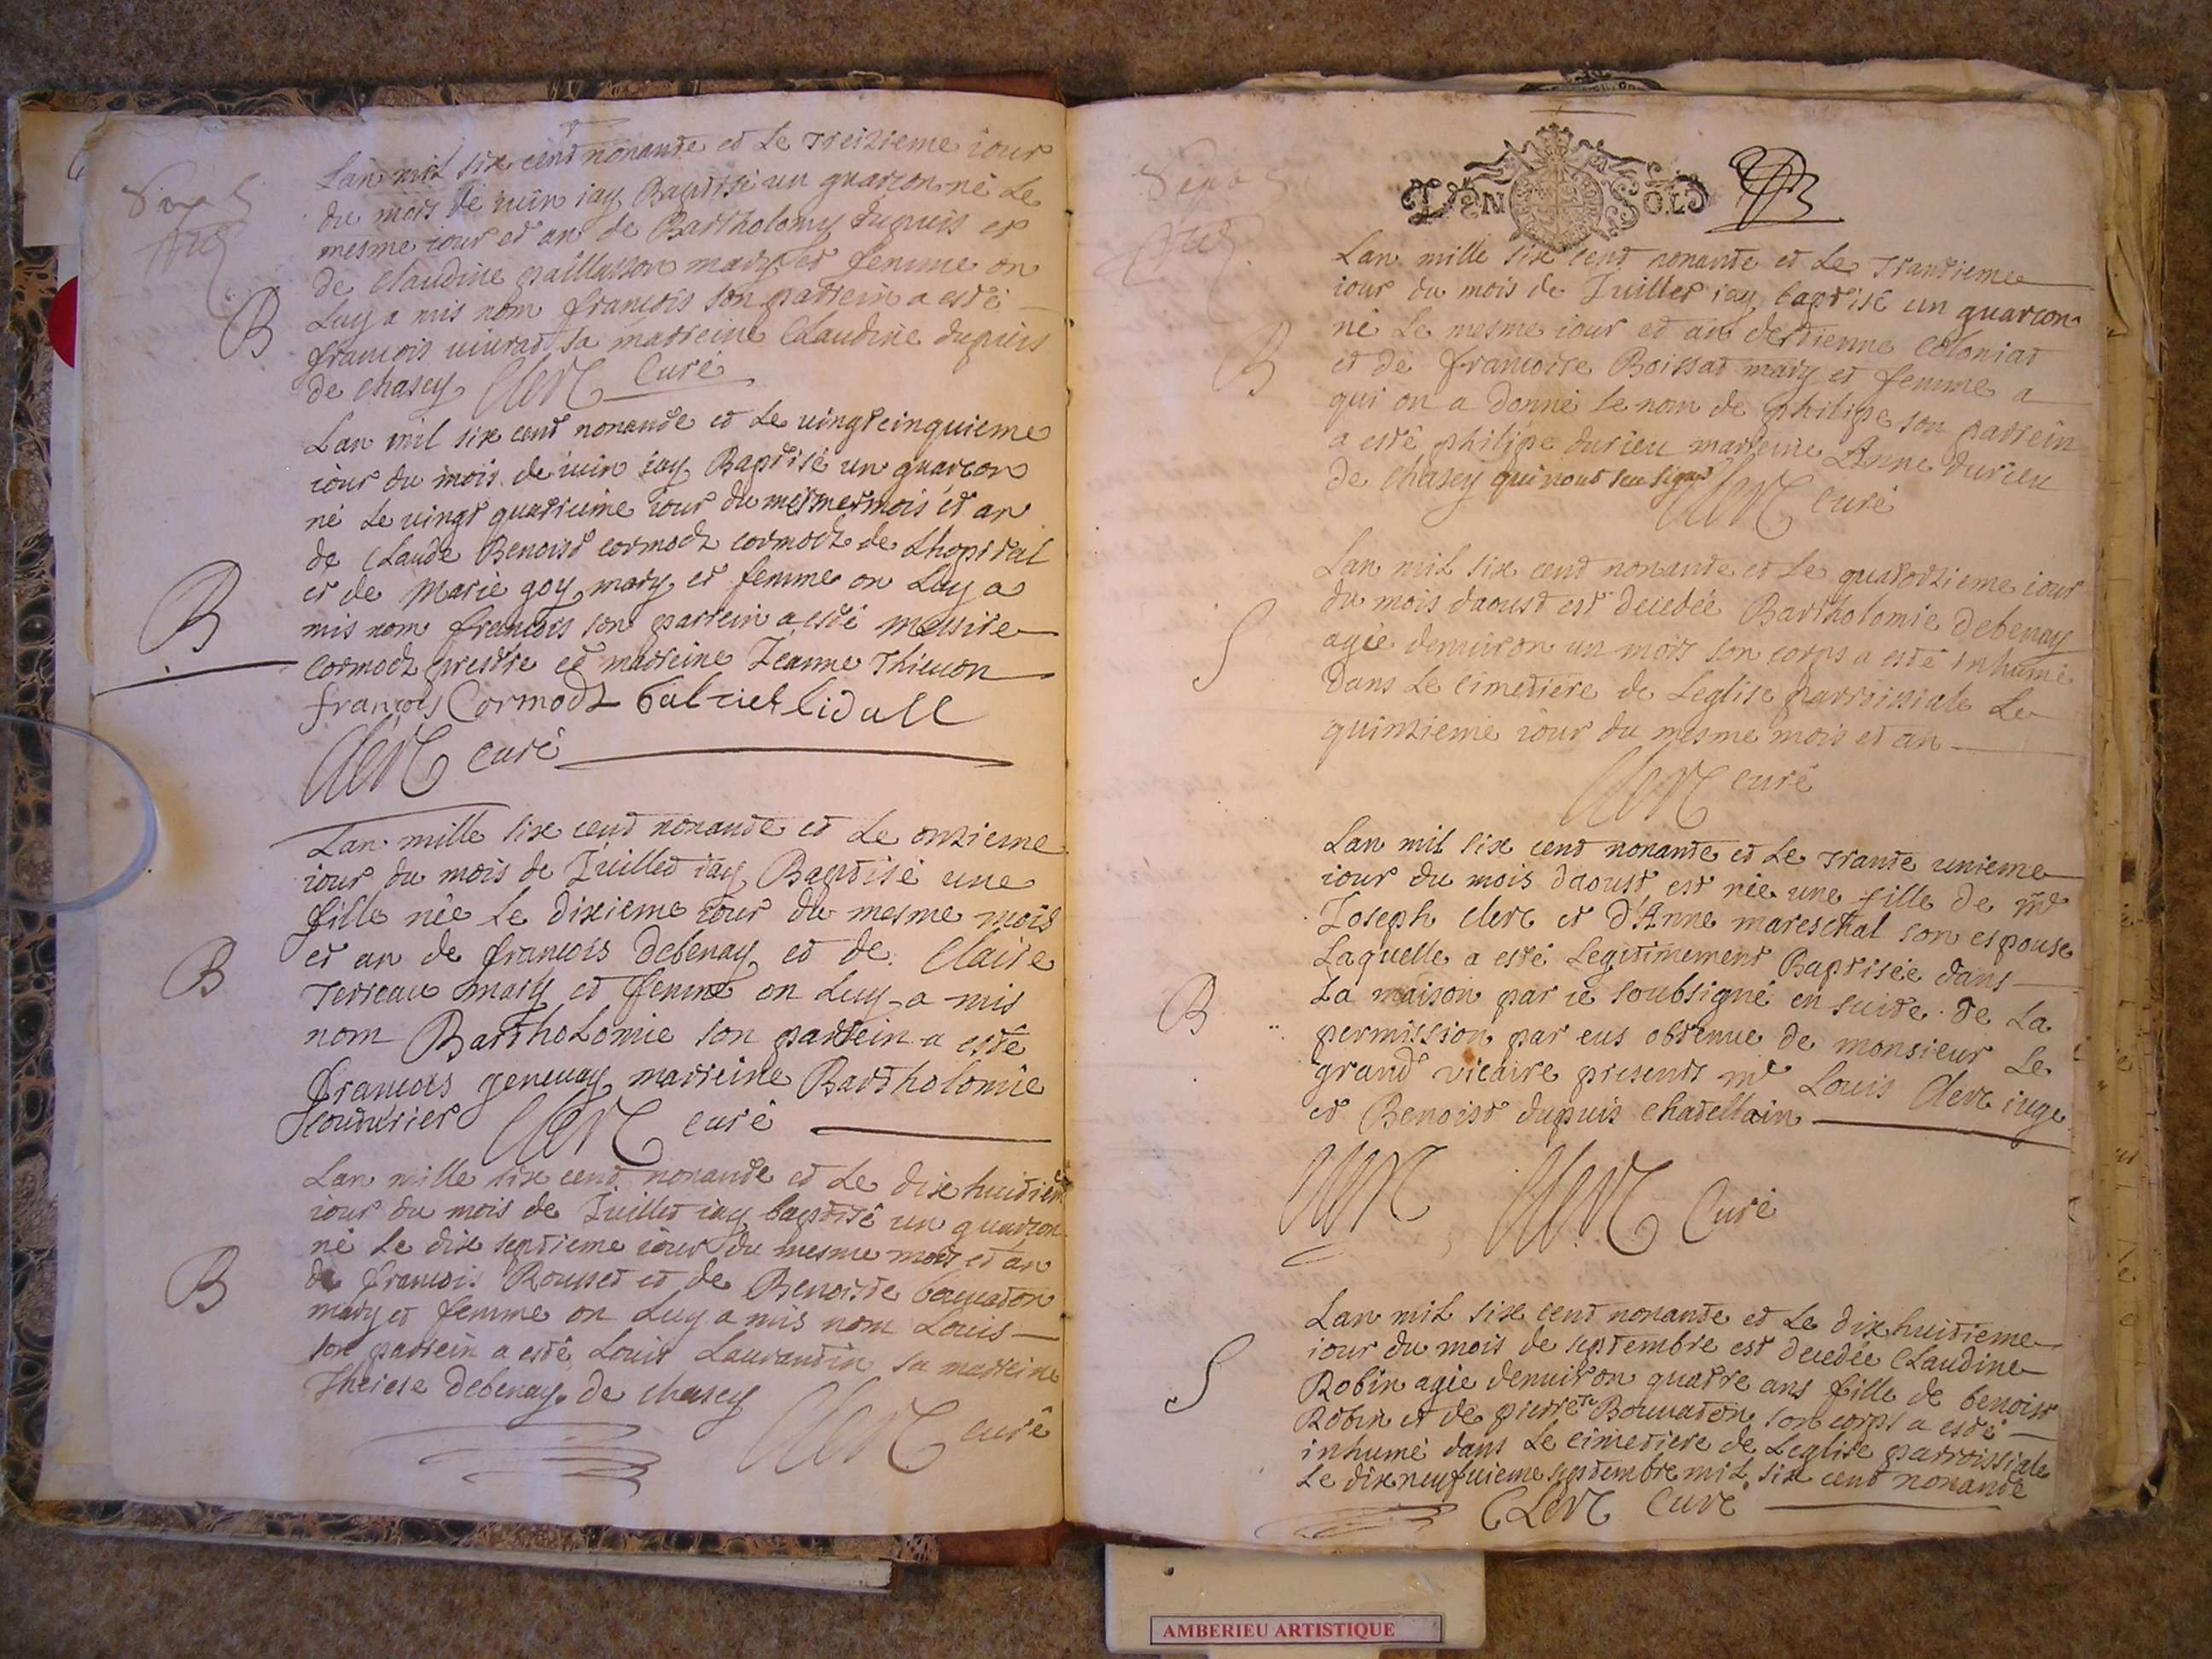 Lan mil six cent nonante et Le treizieme iour
du mois de iuin iay Baptisé un guarcon né Le
mesme iour et an de Bartholomy dupuis et
de Claudine paillasson mary et femme on
Luy a mis nom francois son parrein a esté
francois uiurat sa marreine Claudine dupuis
de chasey Clerc Curé
B
Lan mil six cent nonante et Le uingtcinquieme
iour du mois de iuin iay Baptisé un guarcon
né Le uingt quatrieme iour du mesme mois et an
de Claude Benoist cormodz cormodz de Lhopital
et de Marie goy mary et femme on Luy a
mis nom francois son parrein a esté messire
cormodz prestre et marreine Jeanne Thieuon
francois Cormodz Gabriel Lidall
Clerc curé
B
Lan mille six cent nonante et Le onzieme
iour du mois de Juillet iay Baptisé une
fille née Le dixieme iour du mesme mois
et an de francois debenay et de Claire
Terreau mary et femme on Luy a mis
nom BarthoLomie son parrein a esté
francois geneuay marreine Bartholomie
Couturier Clerc curé
B
Lan mille six cent nonante et Le dix huitiem
iour du mois de Juillet iay baptisé un guarcon
né Le dix septieme iour du mesme mois et an
de francois Rousset et de Benoiste bouuaton
mary et femme on Luy a mis nom Louis
son parrein a esté Louis Laurandin sa marreine
Therese debenay de chasey
Clerc curé
B
DEN SOL
Lan mille six cent nonante et Le Trantieme
iour du mois de Juillet iay baptisé un guarcon
né Le mesme iour et an destienne Coloniat
et de francoise Boissat mary et femme a
qui on a donné Le nom de philipe son parrein
a esté philipe durieu marreine Anne durieu
de Chasey qui nont sceu signer Clerc curé
B
Lan mil six cent nonante et Le quatorzieme iour
du mois daoust est decedée Bartholomie debenay
agée denuiron un mois son corps a esté inhumé
dans Le cimetiere de Leglise parroissiale Le
quinzieme iour du mesme mois et an
Clerc curé
S
Lan mil six cent nonante et Le trante unieme
iour du mois daoust est née une fille de me
Joseph clerc et d'Anne mareschal son espouse
Laquelle a esté Legitimement Baptisée dans
La maison par ie soubsigné en suite de La
permission par eus obtenue de monsieur Le
grand vicaire presents me Louis Clerc iuge
et Benoist dupuis chatellain
Clerc Clerc Curé
B
Lan mil six cent nonante et Le dix huitieme
iour du mois de septembre est decedée Claudine
Robin agée denuiron quatre ans fille de benoist
Robin et de pierrete Bouuaton son corps a esté
inhumé dans Le cimetiere de Leglise parroissiale
Le dix neufuieme septembre mil six cent nonante
Clerc Curé
S
AMBERIEU ARTISTIQUE